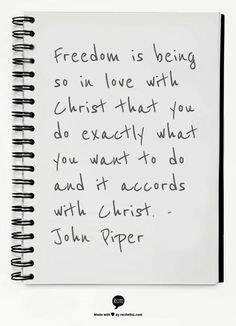 Freedom is being
so in love with
Christ that you
do exactly what
you want to do
and it accords
with Christ. -
John Piper
Made with ♥ by recitethis.com